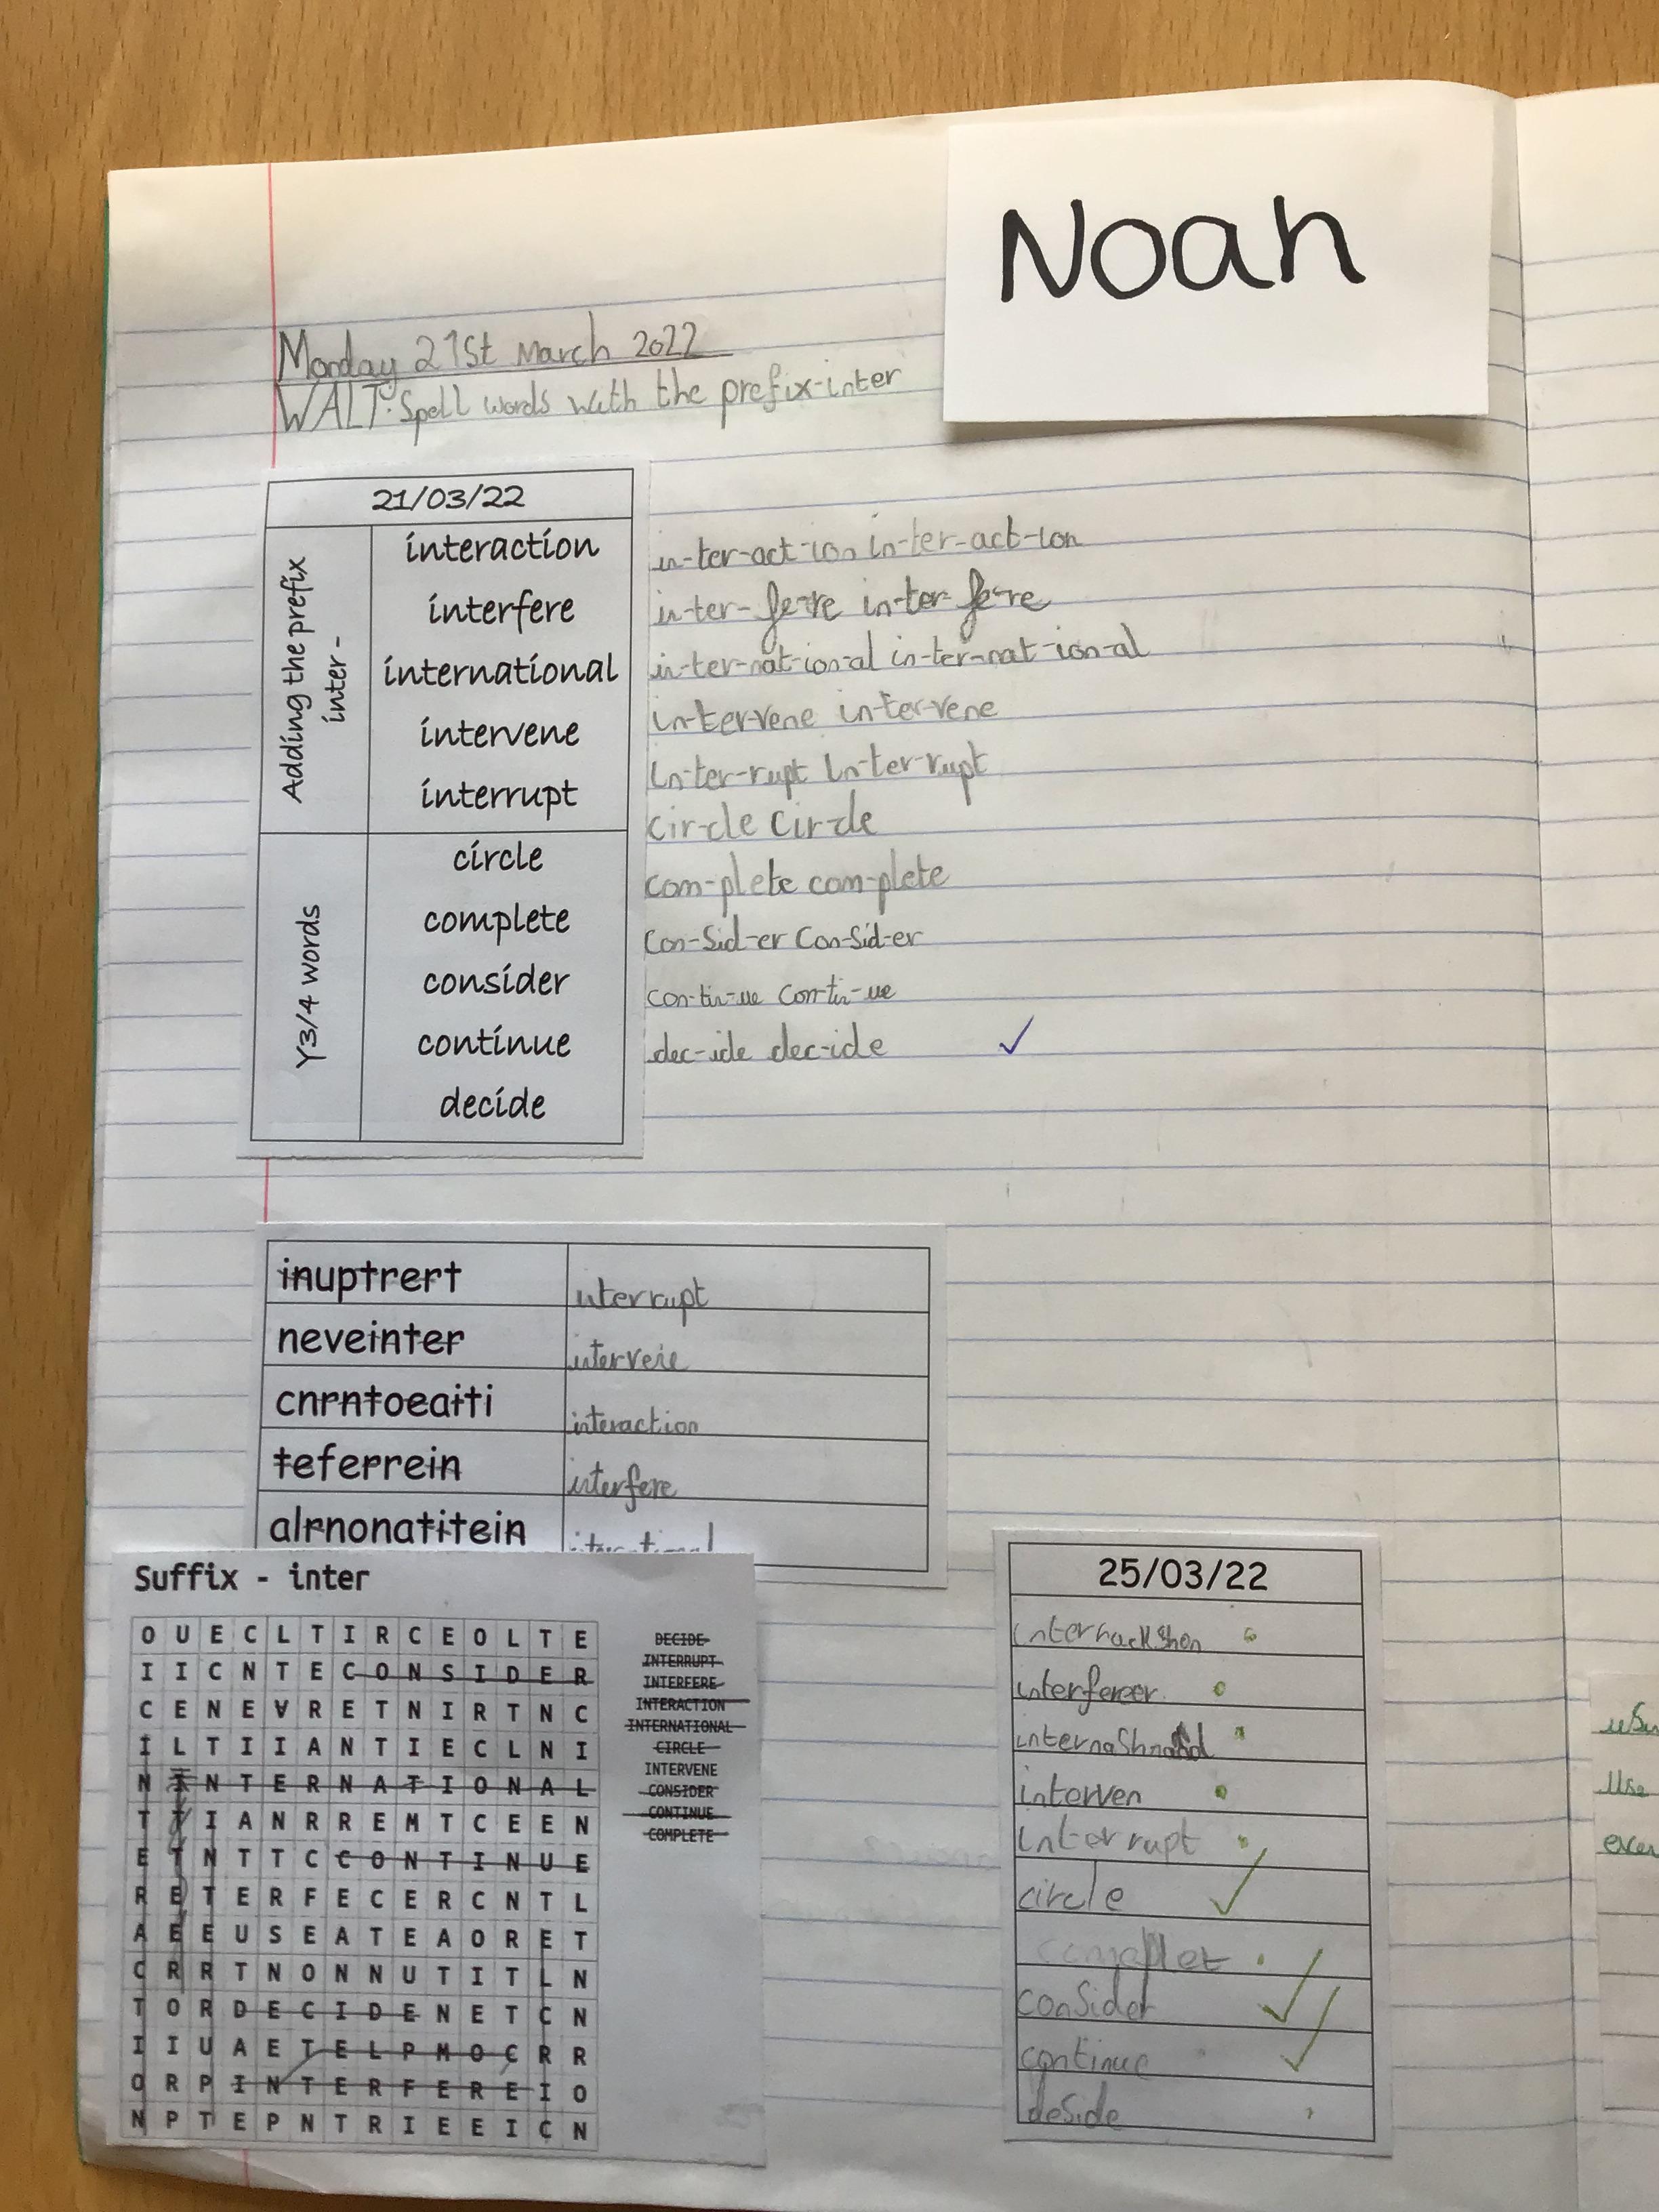 Noah
Monday 21st March 2022
WALT: Spell words with the prefix-inter
21/03/22
Adding the prefix
inter -
interaction
interfere
international
intervene
interrupt
Y3/4 words
circle
complete
consider
continue
decide
in-ter-act-ion in-ter-act-ion
in-ter-fe-re in-ter-fe-re
in-ter-nat-ion-al in-ter-nat-ion-al
in-ter-vene in-ter-vene
in-ter-rupt in-ter-rupt
cir-cle cir-cle
com-plete com-plete
con-Sid-er con-Sid-er
con-tin-ue con-tin-ue
dec-ide dec-ide
inuptrert interrupt
neveinter intervene
cnrntoeaiti interaction
teferrein interfere
alrnonatitein
Suffix - inter
O U E C L T I R C E O L T E
I I C N T E C O N S I D E R
C E N E V R E T N I R T N C
I L T I I A N T I E C L N I
N I N T E R N A T I O N A L
T T I A N R R E M T C E E N
E T N T T C C O N T I N U E
R E T E R F E C E R C N T L
A E E U S E A T E A O R E T
C R R T N O N N U T I T L N
T O R D E C I D E N E T C N
I I U A E T E L P M O C R R
O R P I N T E R F E R E I O
N P T E P N T R I E E I C N
DECIDE
INTERRUPT
INTERFERE
INTERACTION
INTERNATIONAL
CIRCLE
INTERVENE
CONSIDER
CONTINUE
COMPLETE
25/03/22
interven
interrupt
circle
complet
conSider
continue
deSide
Use